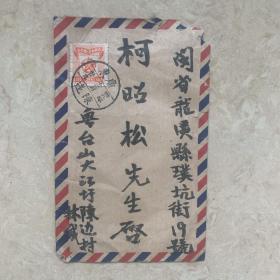 闽省龍溪縣璞坑街19號
柯昭松先生啓
粤台山大江圩陳边村
林